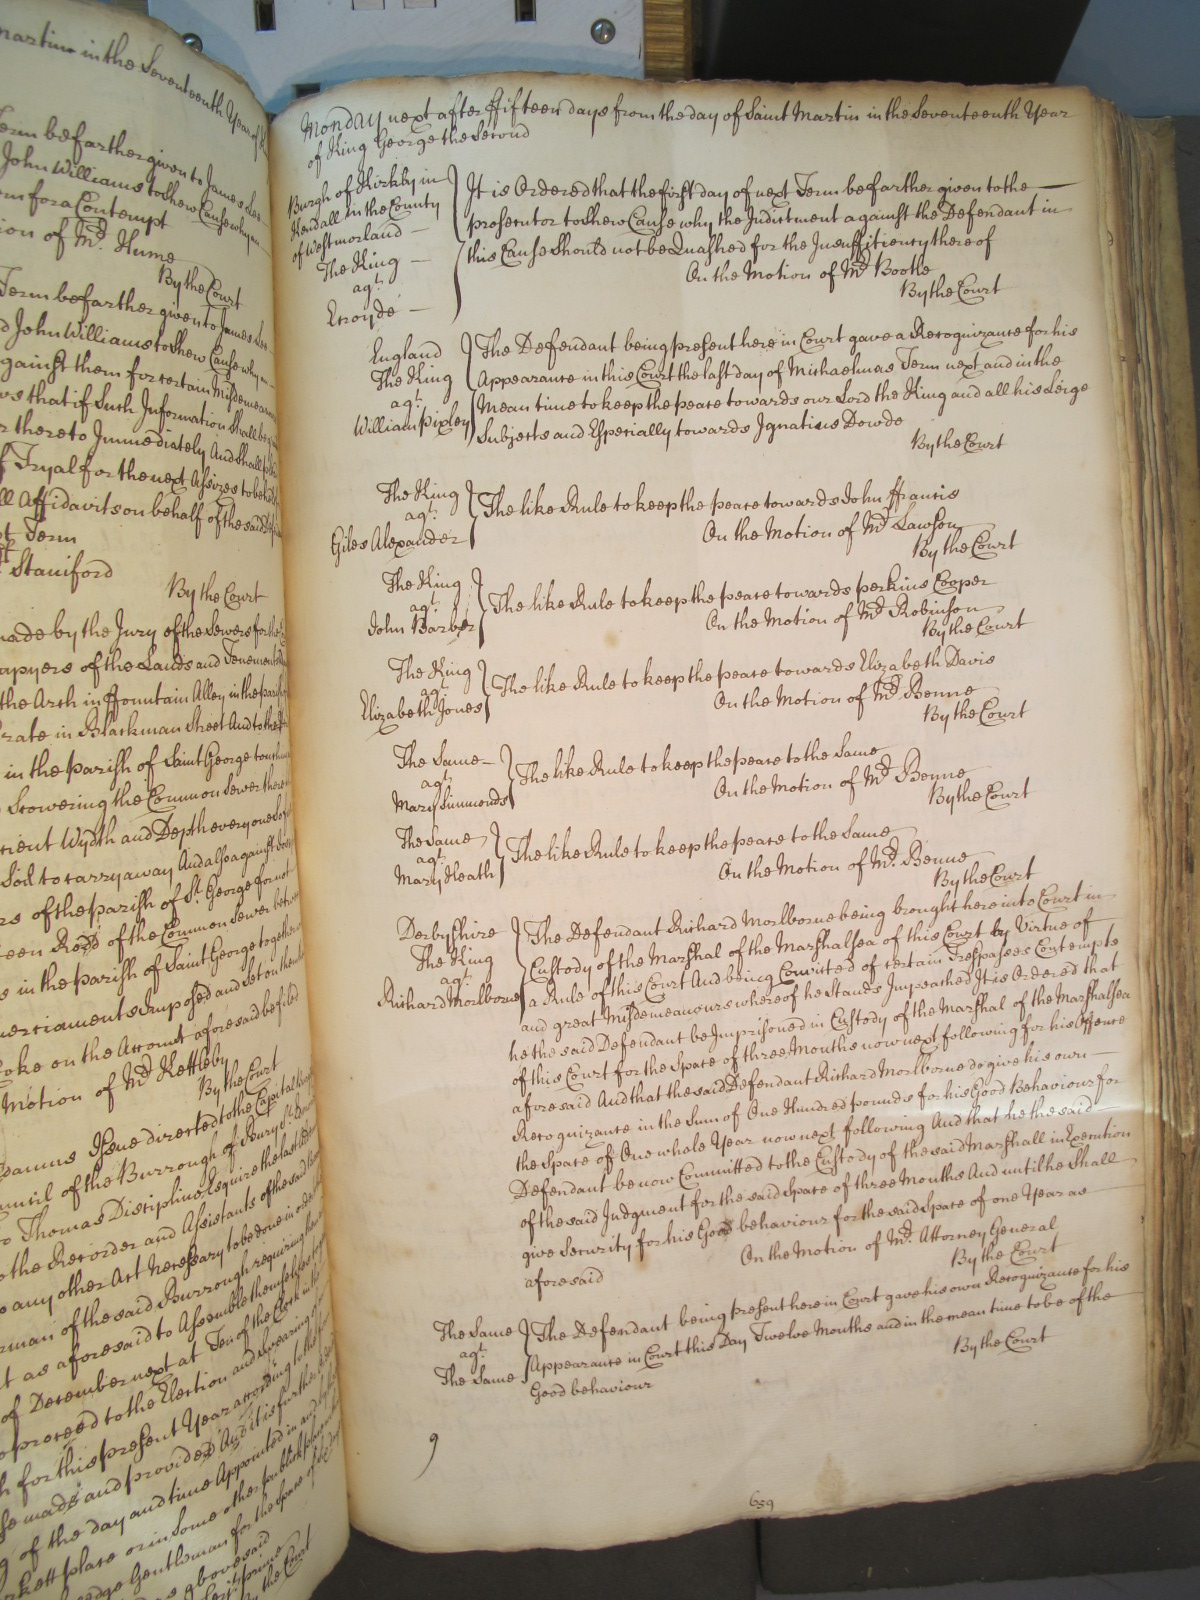 Martin in the Seventeenth Year of
Term be farther given to James
John Williams to shew Cause why
for a Contempt
ion of Mr. Hume
By the Court
Term be farther given to James
John Williams to shew Cause why
against them for certain Misdemeanors
that if such Information shall be
thereto Immediately And shall
Tryal for the next Assizes to be
ll Affidavits on behalf of the said
Term
Staniford
By the Court
made by the Jury of the Sewers for the
of the Lands and Tenements
the Arch in Fountain Alley in the parish
in Blackman Street And to the
in the parish of Saint George
Scowering the Common Sewer
Wydth and Depth every one
Soil to carry away And also against
rs of the parish of St. George for not
Rods of the Common Sewer
in the parish of Saint George together
Imposed and set on them
on the Account aforesaid be filed
Motion of Mr. Kettleby
By the Court
Issue directed to the Capital
of the Burrough of Bury St.
Thomas Discipline Esquire the last
the Recorder and Assistants of the said
any other Act necessary to be done in order
of the said Burrough requiring
as aforesaid to Assemble themselves
of December next at Ten of the Clock in the
proceed to the Election and swearing
for this present Year according to the
made and provided And it is further
of the day and time Appointed in and
place or in some other publick place
Gentleman for the space of
abovesaid
By the Court
Monday next after ffifteen days from the day of Saint Martin in the Seventeenth Year
of King George the Second
Burgh of Kirkby in
Kendall in the County
of Westmorland
The King
agt.
Croyde
It is Ordered that the first day of next Term be farther given to the
prosecutor to shew Cause why the Indictment against the Defendant in
this Cause should not be Quashed for the Insufficiency thereof
On the Motion of Mr. Bootle
By the Court
England
The King
agt.
William Pixley
The Defendant being present here in Court gave a Recognizance for his
Appearance in this Court the last day of Michaelmas Term next and in the
Mean time to keep the peace towards our Lord the King and all his Leige
Subjects and Especially towards Ignatius Dowde
By the Court
The King
agt.
Giles Alexander
The like Rule to keep the peace towards John ffrancis
On the Motion of Mr. Lawson
By the Court
The King
agt.
John Barber
The like Rule to keep the peace towards perkins Cooper
On the Motion of Mr. Robinson
By the Court
The King
agt.
Elizabeth Jones
The like Rule to keep the peace towards Elizabeth Davis
On the Motion of Mr. Benne
By the Court
The Same
agt.
Mary Simmonds
The like Rule to keep the peace to the Same
On the Motion of Mr. Benne
By the Court
The Same
agt.
Mary Heath
The like Rule to keep the peace to the Same
On the Motion of Mr. Benne
By the Court
Derbyshire
The King
agt.
Richard Morlborne
The Defendant Richard Morlborne being brought here into Court in
Custody of the Marshal of the Marshalsea of this Court by Virtue of
a Rule of this Court And being Convicted of certain Trespasses Contempts
and great Misdemeanours whereof he Stands Impeached It is Ordered that
he the said Defendant be Imprisoned in Custody of the Marshal of the Marshalsea
of this Court for the Space of three Months now next following for his Offence
aforesaid And that the said Defendant Richard Morlborne do give his own
Recognizance in the Sum of One Hundred pounds for his Good Behaviour for
the Space of One whole Year now next following And that he the said
Defendant be now Committed to the Custody of the said Marshall in Execution
of the said Judgment for the said Space of three Months And until he Shall
give Security for his Good behaviour for the said Space of one Year as
aforesaid
On the Motion of Mr. Attorney General
By the Court
The Same
agt.
The Same
The Defendant being present here in Court gave his own Recognizance for his
Appearance in Court this Day Twelve Months and in the mean time to be of the
Good behaviour
By the Court
9
659